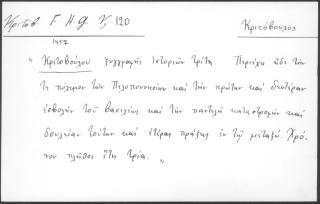 Κριτόβ. F. H. G. V, 120
Κριτόβουλος
1457
" Κριτοβούλου ξυγγραφῆς ἱστοριῶν τρίτη. Περιέχει ὧδε τόν
τε πόλεμον τῶν Πελοποννησίων καὶ τὴν πρώτην καὶ δευτέραν
ἐσβολὴν τοῦ βασιλέως καὶ τὴν παντελῆ καταστροφὴν καὶ
δουλείαν τούτων καὶ ἑτέρας πράξεις ἐν τῷ μεταξύ. Χρό-
νου πλῆθος ἔτη τρία. "